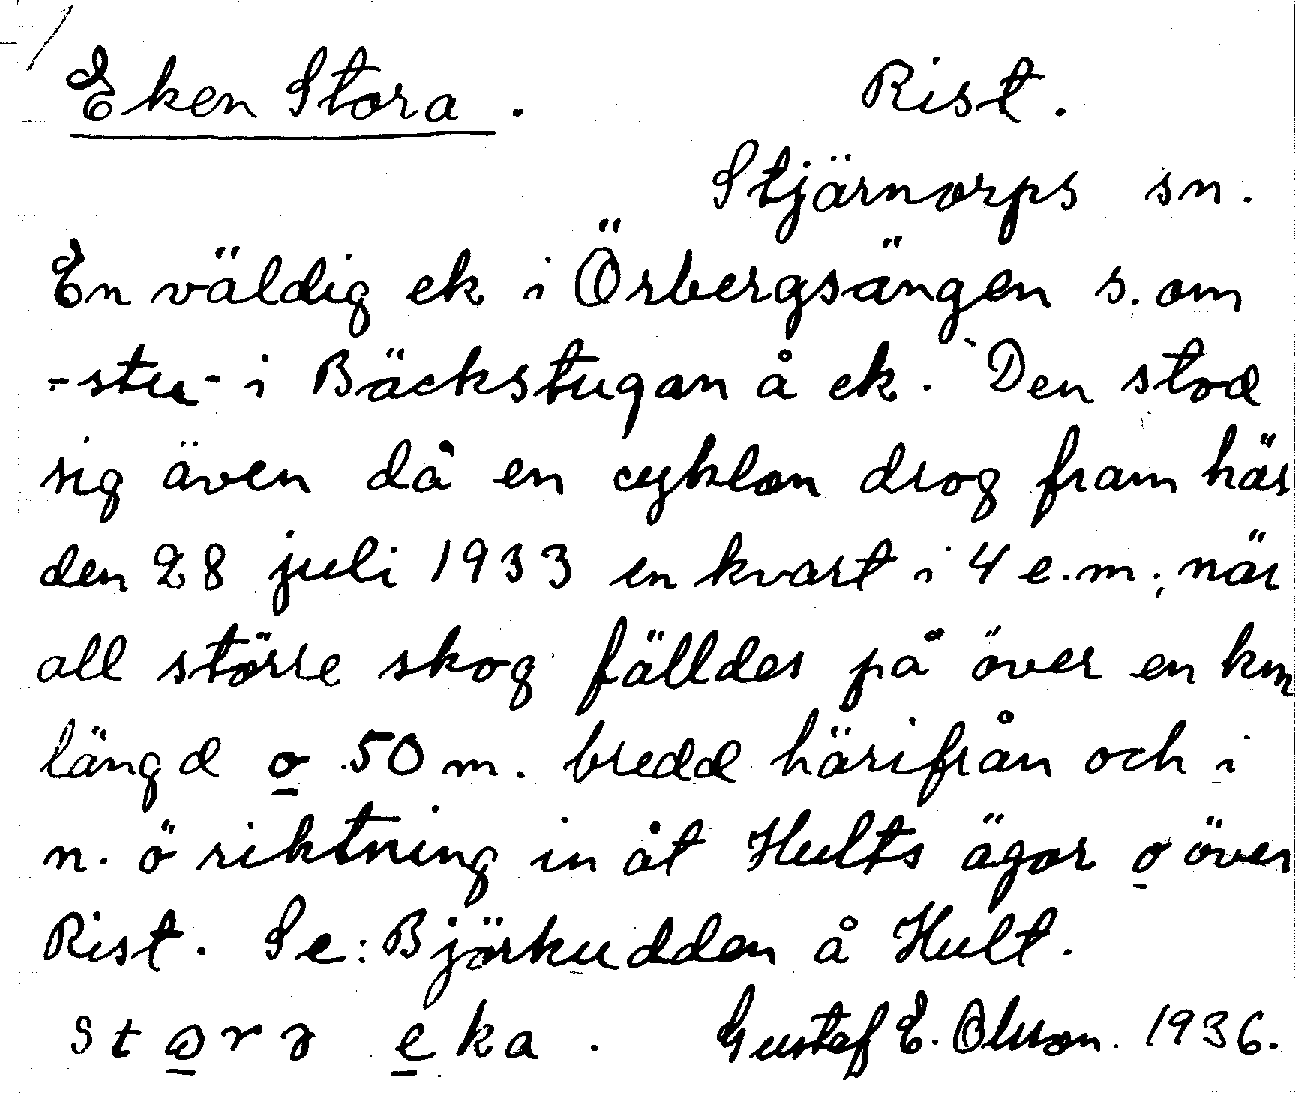 Eken Stora. Rist.
Stjärnorps sn.
En väldig ek i Örbergsängen s. om
-stu- i Bäckstugan å ek. Den stod
sig även då en cyklon drog fram här
den 28 juli 1933 en kvart i 4 e.m; när
all större skog fälldes på över en km
längd o 50 m. bredd härifrån och i
n. ö riktning in åt Hults ägor o över
Rist. Se: Björkudden å Hult.
stora eka. Gustaf E. Olsson. 1936.